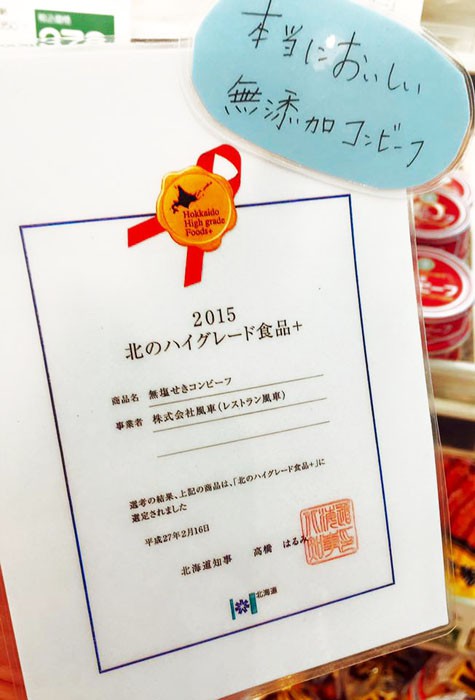 税込価格
本当においしい
無添加コンビーフ
Hokkaido
High grade
Foods+
2015
北のハイグレード食品+
商品名 無塩せきコンビーフ
事業者 株式会社風車(レストラン風車)
選考の結果、上記の商品は、「北のハイグレード食品+」に
選定されました
平成27年2月16日
北海道知事 高橋 はるみ
北海道